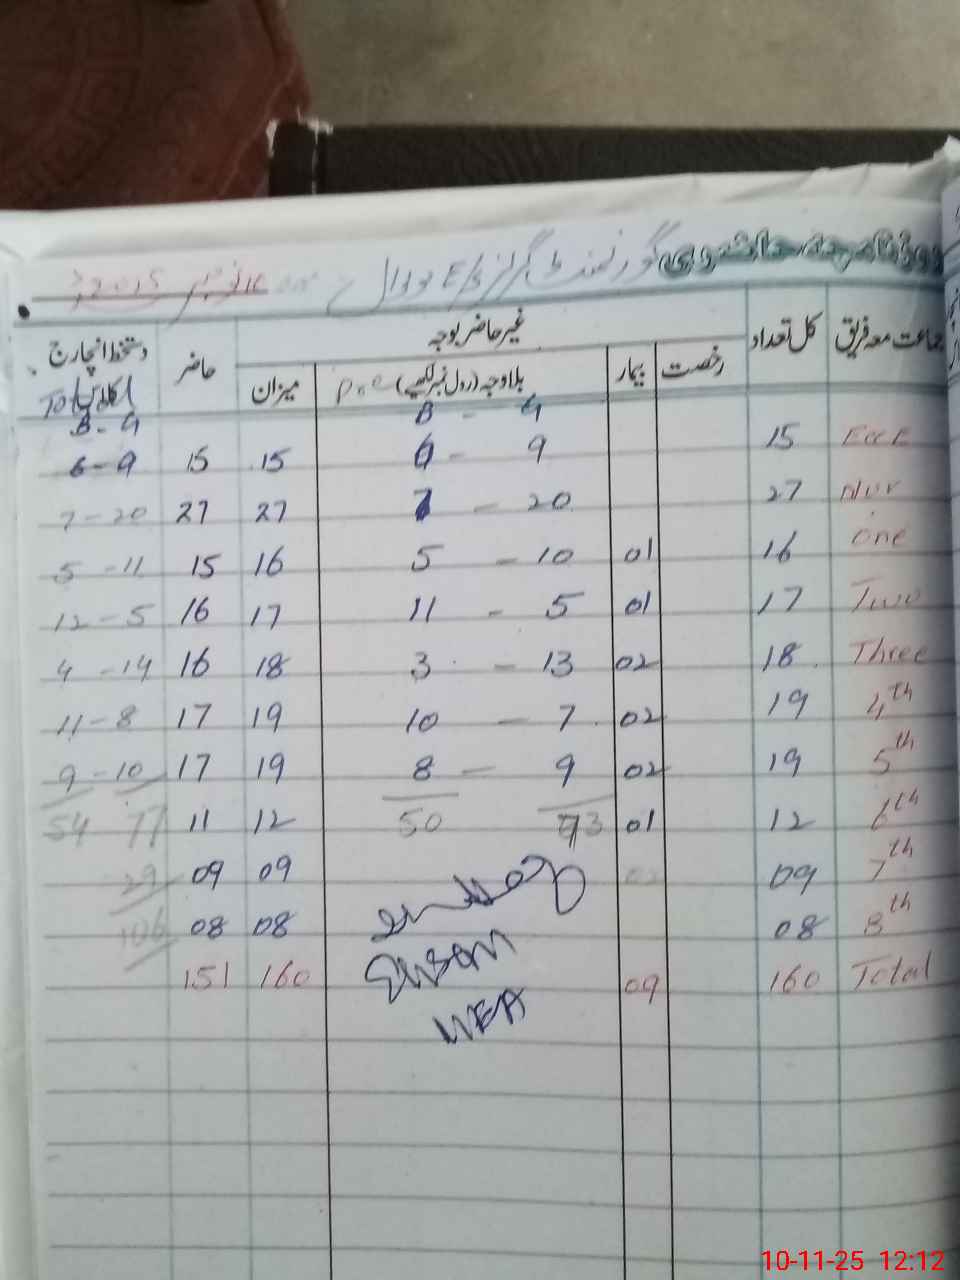 روزنامچہ حاضری گورنمنٹ گرلز E/S
جماعت معہ فریق کل تعداد غیر حاضر بوجہ حاضر دستخط انچارج
رخصت بیمار بلاوجہ (رول نمبر لکھیے) میزان
Total
B - G B - G
ECCE 15 6 - 9 15 15 6 - 9
Nur 27 7 - 20 27 27 7 - 20
One 16 01 5 - 10 16 15 5 - 11
Two 17 01 11 - 5 17 16 12 - 5
Three 18 02 3 - 13 18 16 4 - 14
4th 19 02 10 - 7 19 17 11 - 8
5th 19 02 8 - 9 19 17 9 - 10
6th 12 01 50 73 12 11 54 77
7th 09 09 09 29
8th 08 08 08 106
Total 160 09 160 151
10-11-25 12:12